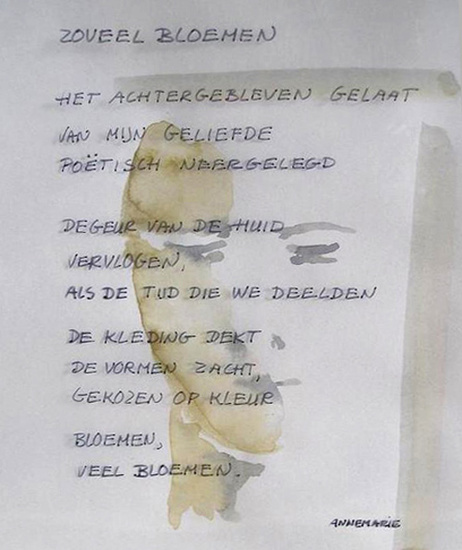 ZOVEEL BLOEMEN
HET ACHTERGEBLEVEN GELAAT
VAN MIJN GELIEFDE
POËTISCH NEERGELEGD
DEGEUR VAN DE HUID
VERVLOGEN,
ALS DE TIJD DIE WE DEELDEN
DE KLEDING DEKT
DE VORMEN ZACHT,
GEKOZEN OP KLEUR
BLOEMEN,
VEEL BLOEMEN.
ANNEMARIE